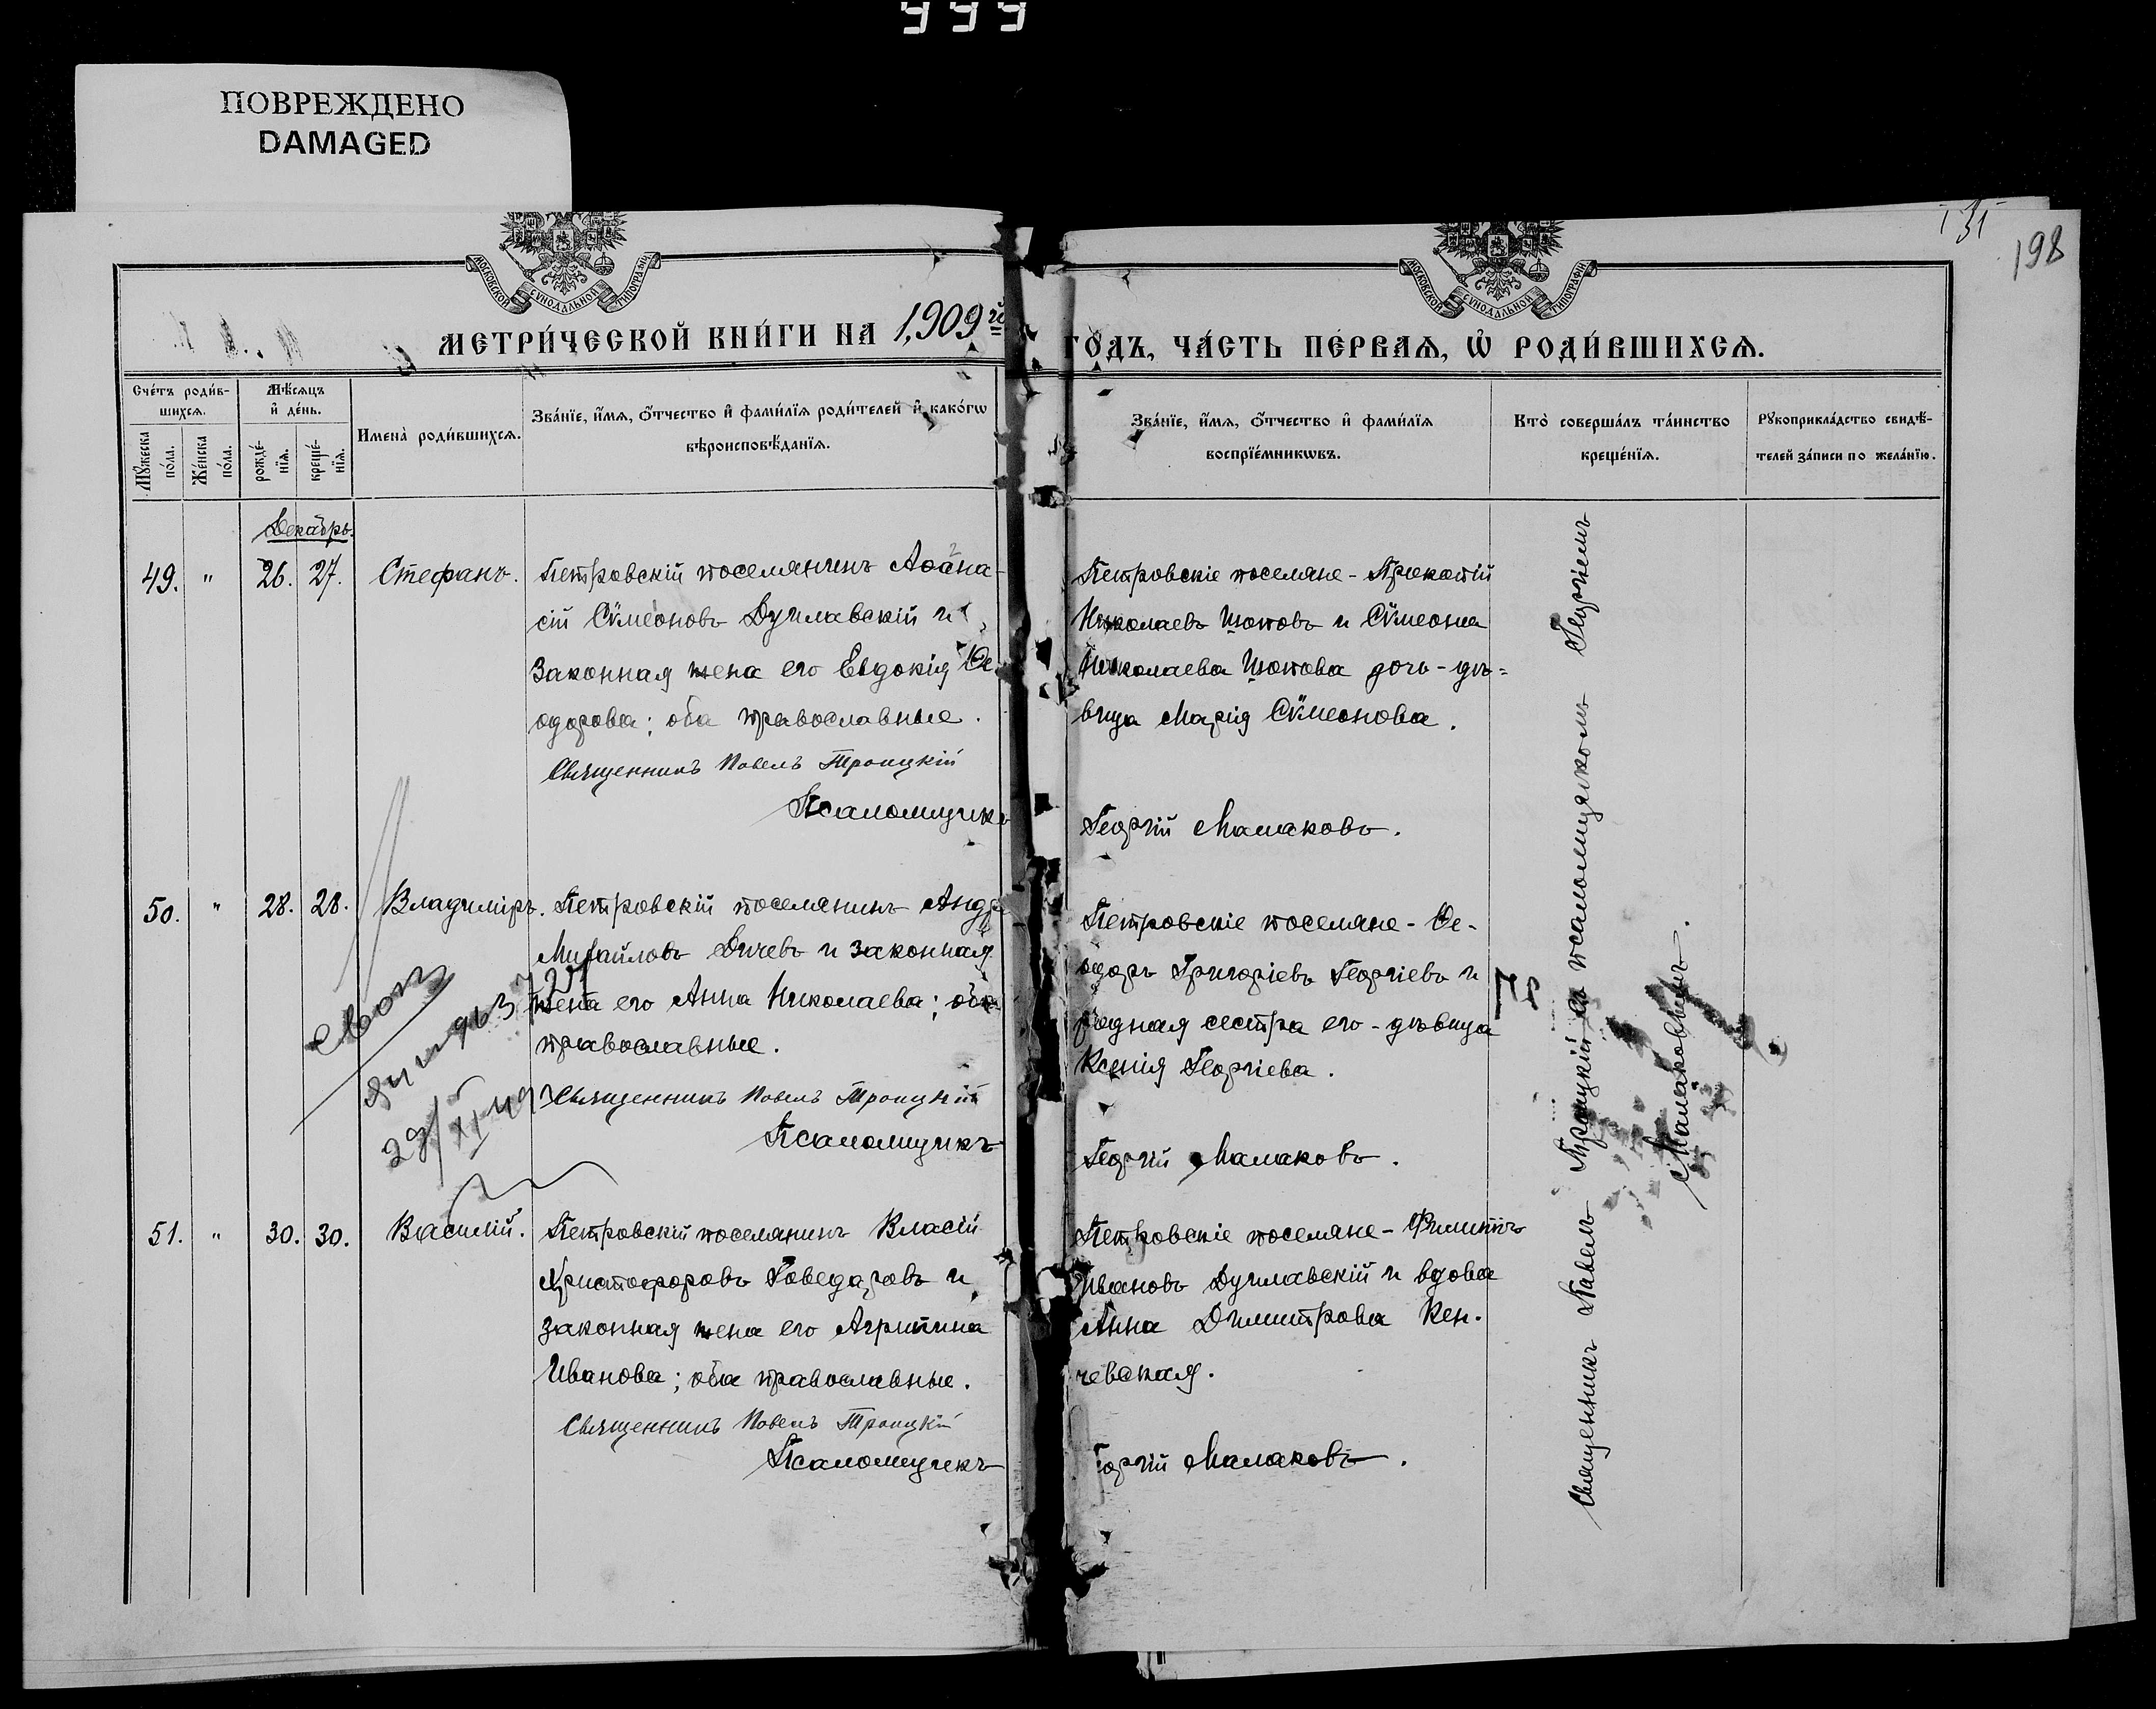 999
ПОВРЕЖДЕНО
DAMAGED
131
198
МОСКОВСКОЙ СѴНОДАЛЬНОЙ ТИПОГРАФІИ
МОСКОВСКОЙ СѴНОДАЛЬНОЙ ТИПОГРАФІИ
МЕТРИ́ЧЕСКОЙ КНИ́ГИ НА 1909 го́
ГО́ДЪ, ЧА́СТЬ ПЕ́РВАѦ, Ѡ҆ РОДИ́ВШИХСѦ.
Сче́тъ роди́в-
шихсѧ.
Мꙋ́жеска по́ла.
Же́нска по́ла.
Мѣ́сѧцъ
и҆ де́нь.
рожде́-
нїѧ.
креще́-
нїѧ.
Имена̀ роди́вшихсѧ.
Зва́нїе, и҆́мѧ, ѻ҆́тчество и҆ фами́лїѧ роди́телей и҆ како́гѡ
вѣроисповѣ́данїѧ.
Зва́нїе, и҆́мѧ, ѻ҆́тчество и҆ фами́лїѧ
воспрїе́мникѡвъ.
Кто̀ соверша́лъ та́инство
креще́нїѧ.
Рꙋкоприкла́дство свидѣ́-
телей за́писи по жела́нїю.
Декабрь.
49. " 26. 27. Стефанъ.
Петровскій поселянинъ Аѳана-
сій Сѵмеоновъ Дуглавскій и
законная жена его Евдокія Ѳе-
одорова; оба православные.
Священникъ Павелъ Троицкій
Псаломщикъ
Петровскіе поселяне - Прокопій
Николаевъ Цоповъ и Сѵмеона
Николаева Цопова дочь - дѣ-
вица Марія Сѵмеонова.
Георгій Малаковъ.
50. " 28. 28. Владиміръ.
Петровскій поселянинъ Андр
Михайловъ Дичевъ и законная
жена его Анна Николаева; оба
православные.
Священникъ Павелъ Троицкій
Псаломщикъ
29/XI 49
Петровскіе поселяне - Ѳе-
одоръ Григоріевъ Георгіевъ и
родная сестра его - дѣвица
Ксенія Георгіева.
Георгій Малаковъ.
51. " 30. 30. Василій.
Петровскій поселянинъ Власій
Христофоровъ Говедаровъ и
законная жена его Агрипина
Иванова; оба православные.
Священникъ Павелъ Троицкій
Псаломщикъ
Петровскіе поселяне - Филиппъ
Ивановъ Дуглавскій и вдова
Анна Димитрова Кен-
чевская.
Георгій Малаковъ.
Священникъ Павелъ Троицкій съ псаломщикомъ Георгіемъ
Малаковымъ.